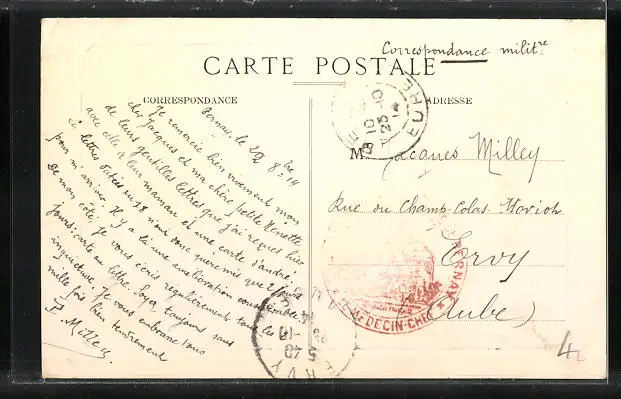 Correspondance milit.re
CARTE POSTALE
CORRESPONDANCE
ADRESSE
Pernay, le 22 8bre 14
Je remercie bien vivement mon
cher Jacques et ma chère petite
de leurs gentilles lettres que j'ai reçues hier
avec celle de leur maman et une carte d'André.
Ces lettres datées du 18 n'ont donc guère mis que 2 jours
pour m'arriver. Il y a là une amélioration considérable
De mon côté, je vous écris régulièrement tous les
jours: carte ou lettre. Soyez toujours sans
inquiétude. Je vous embrasse tous
mille fois bien tendrement
P. Milley
M Jacques Milley
Rue du Champ-Colas
Ervy
(Aube)
EURE
MÉDECIN-CHEF
ERVY
4